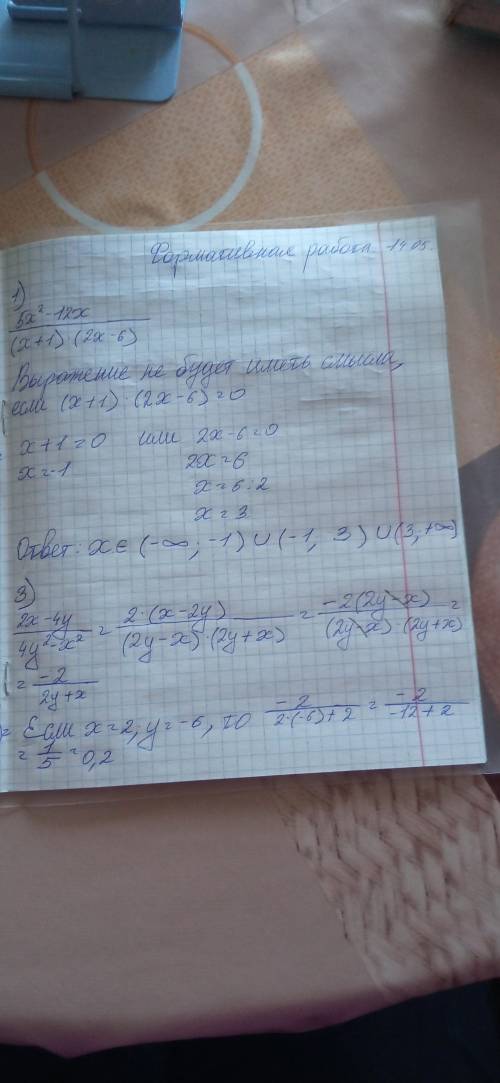 Формативная работа. 14.05.
1)
5x² - 12x / (x+1)·(2x-6)
Выражение не будет иметь смысла,
если (x+1)·(2x-6)=0
x+1=0 или 2x-6=0
x=-1 2x=6
x=6:2
x=3
Ответ: x∈(-∞; -1)∪(-1, 3)∪(3; +∞)
3)
2x-4y / 4y²-x² = 2·(x-2y) / (2y-x)·(2y+x) = -2(2y-x) / (2y-x)·(2y+x) =
= -2 / 2y+x
= Если x=2, y=-6, то -2 / 2·(-6)+2 = -2 / -12+2
= 1/5 = 0,2